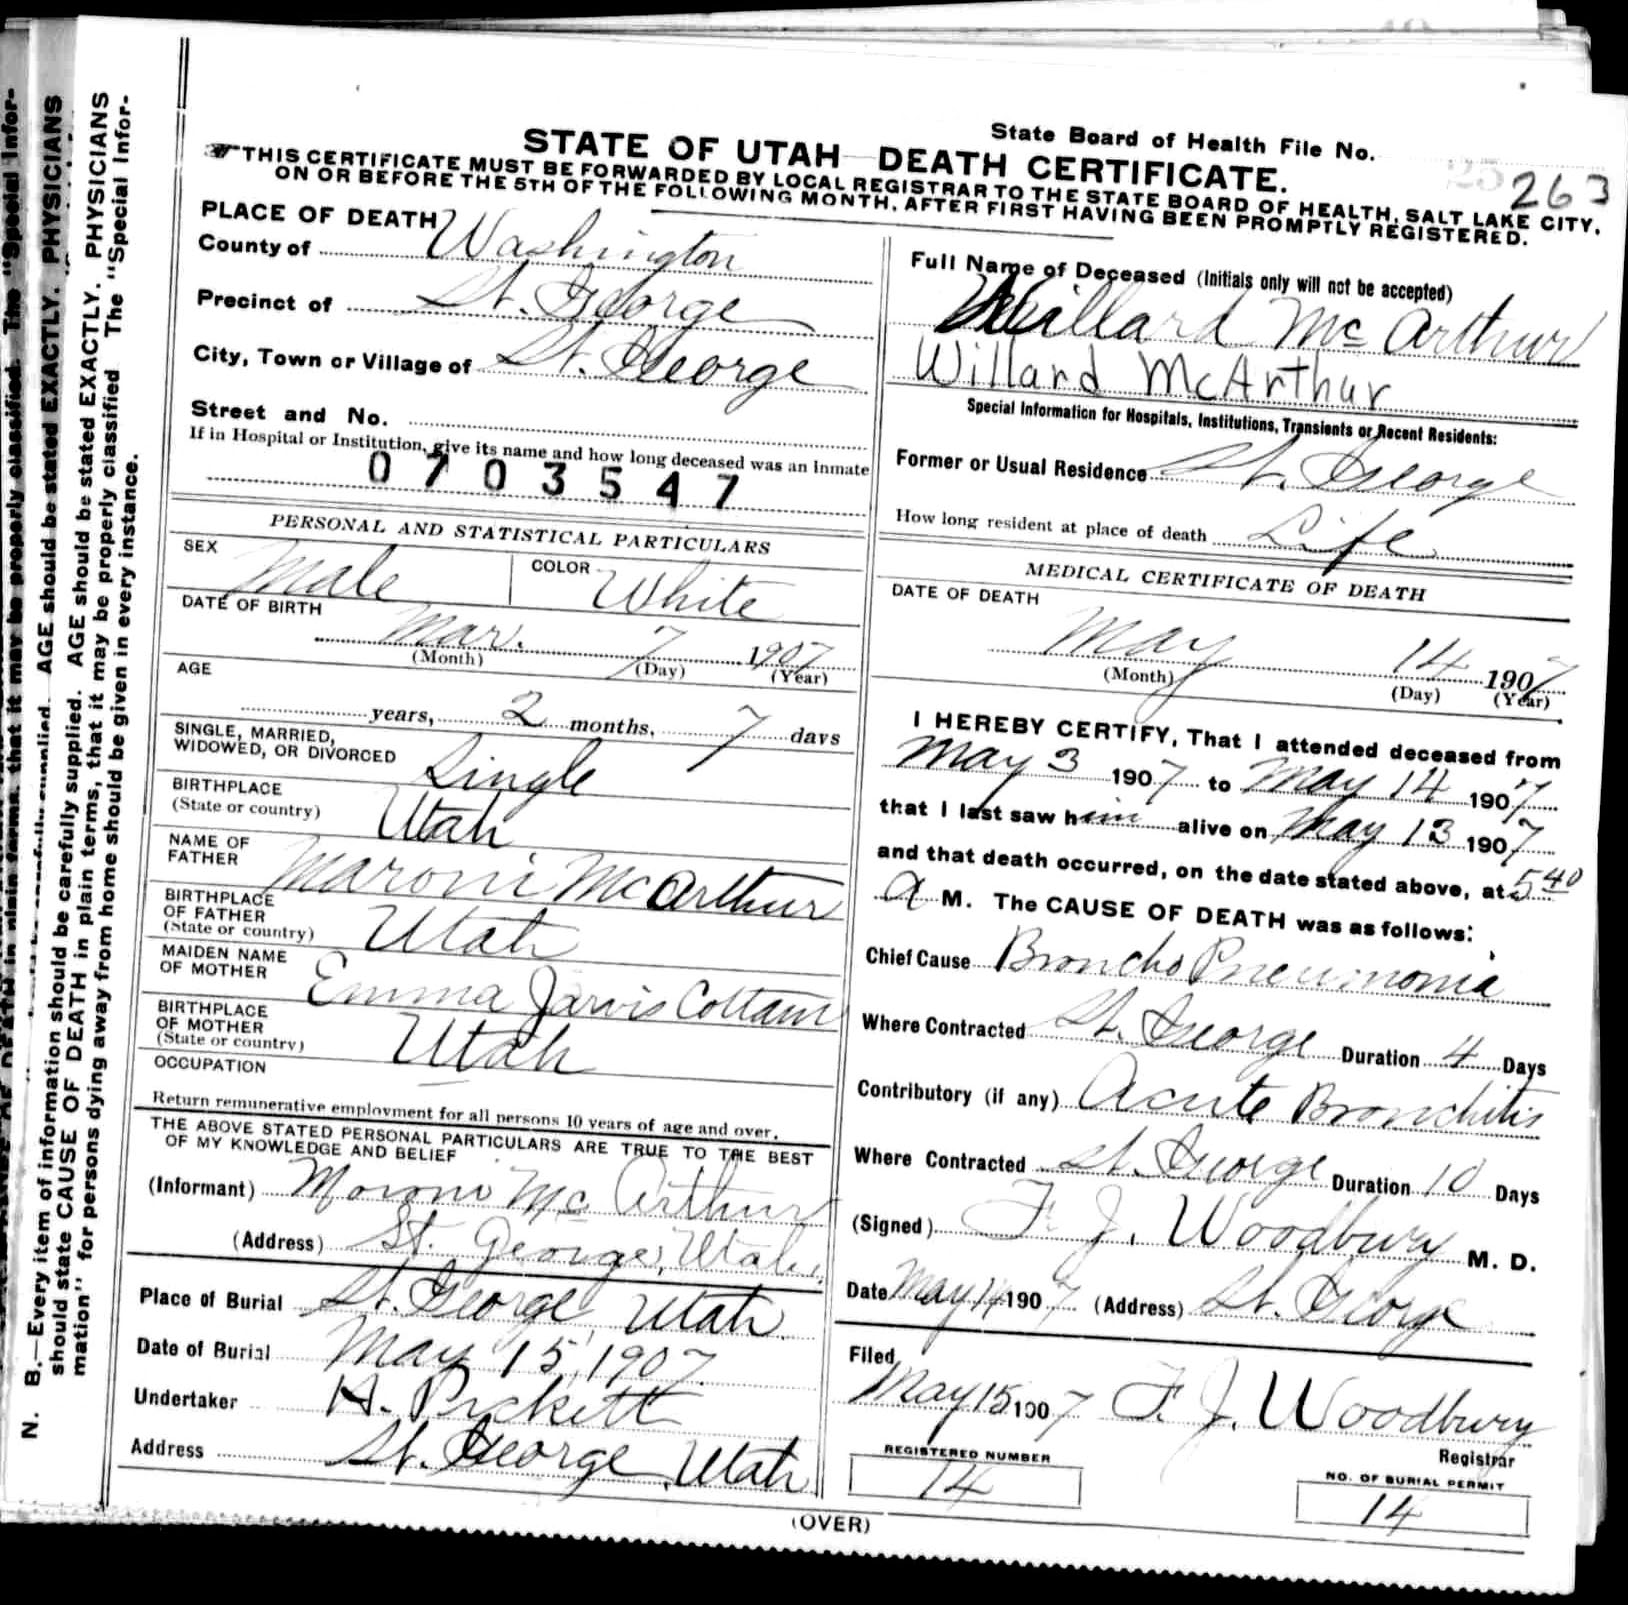 State Board of Health File No. 263
STATE OF UTAH—DEATH CERTIFICATE.
THIS CERTIFICATE MUST BE FORWARDED BY LOCAL REGISTRAR TO THE STATE BOARD OF HEALTH, SALT LAKE CITY,
ON OR BEFORE THE 5TH OF THE FOLLOWING MONTH, AFTER FIRST HAVING BEEN PROMPTLY REGISTERED.
PLACE OF DEATH
County of Washington
Precinct of St. George
City, Town or Village of St. George
Street and No.
If in Hospital or Institution, give its name and how long deceased was an Inmate
0703547
PERSONAL AND STATISTICAL PARTICULARS
SEX Male COLOR White
DATE OF BIRTH
Mar. 7 1907
(Month) (Day) (Year)
AGE
years, 2 months, 7 days
SINGLE, MARRIED,
WIDOWED, OR DIVORCED Single
BIRTHPLACE
(State or country) Utah
NAME OF
FATHER Maroni McArthur
BIRTHPLACE
OF FATHER
(State or country) Utah
MAIDEN NAME
OF MOTHER Emma Jarvis Cottam
BIRTHPLACE
OF MOTHER
(State or country) Utah
OCCUPATION —
Return remunerative employment for all persons 10 years of age and over.
THE ABOVE STATED PERSONAL PARTICULARS ARE TRUE TO THE BEST
OF MY KNOWLEDGE AND BELIEF
(Informant) Moroni Mc Arthur
(Address) St. George, Utah.
Place of Burial St. George, Utah.
Date of Burial May 15, 1907.
Undertaker A. Pickett
Address St. George, Utah
Full Name of Deceased (Initials only will not be accepted)
Willard Mc Arthur
Willard McArthur
Special Information for Hospitals, Institutions, Transients or Recent Residents:
Former or Usual Residence St. George
How long resident at place of death Life
MEDICAL CERTIFICATE OF DEATH
DATE OF DEATH
May 14 1907
(Month) (Day) (Year)
I HEREBY CERTIFY, That I attended deceased from
May 3 1907 to May 14 1907
that I last saw him alive on May 13 1907
and that death occurred, on the date stated above, at 5 40
A M. The CAUSE OF DEATH was as follows:
Chief Cause Broncho Pneumonia
Where Contracted St. George Duration 4 Days
Contributory (if any) Acute Bronchitis
Where Contracted St. George Duration 10 Days
(Signed) F. J. Woodbury M. D.
Date May 14 1907 (Address) St. George
Filed
May 15 1907 F. J. Woodbury
Registrar
REGISTERED NUMBER
14
NO. OF BURIAL PERMIT
14
(OVER)
N. B.—Every item of information should be carefully supplied. AGE should be stated EXACTLY. PHYSICIANS
should state CAUSE OF DEATH in plain terms, that it may be properly classified The "Special Infor-
mation" for persons dying away from home should be given in every instance.